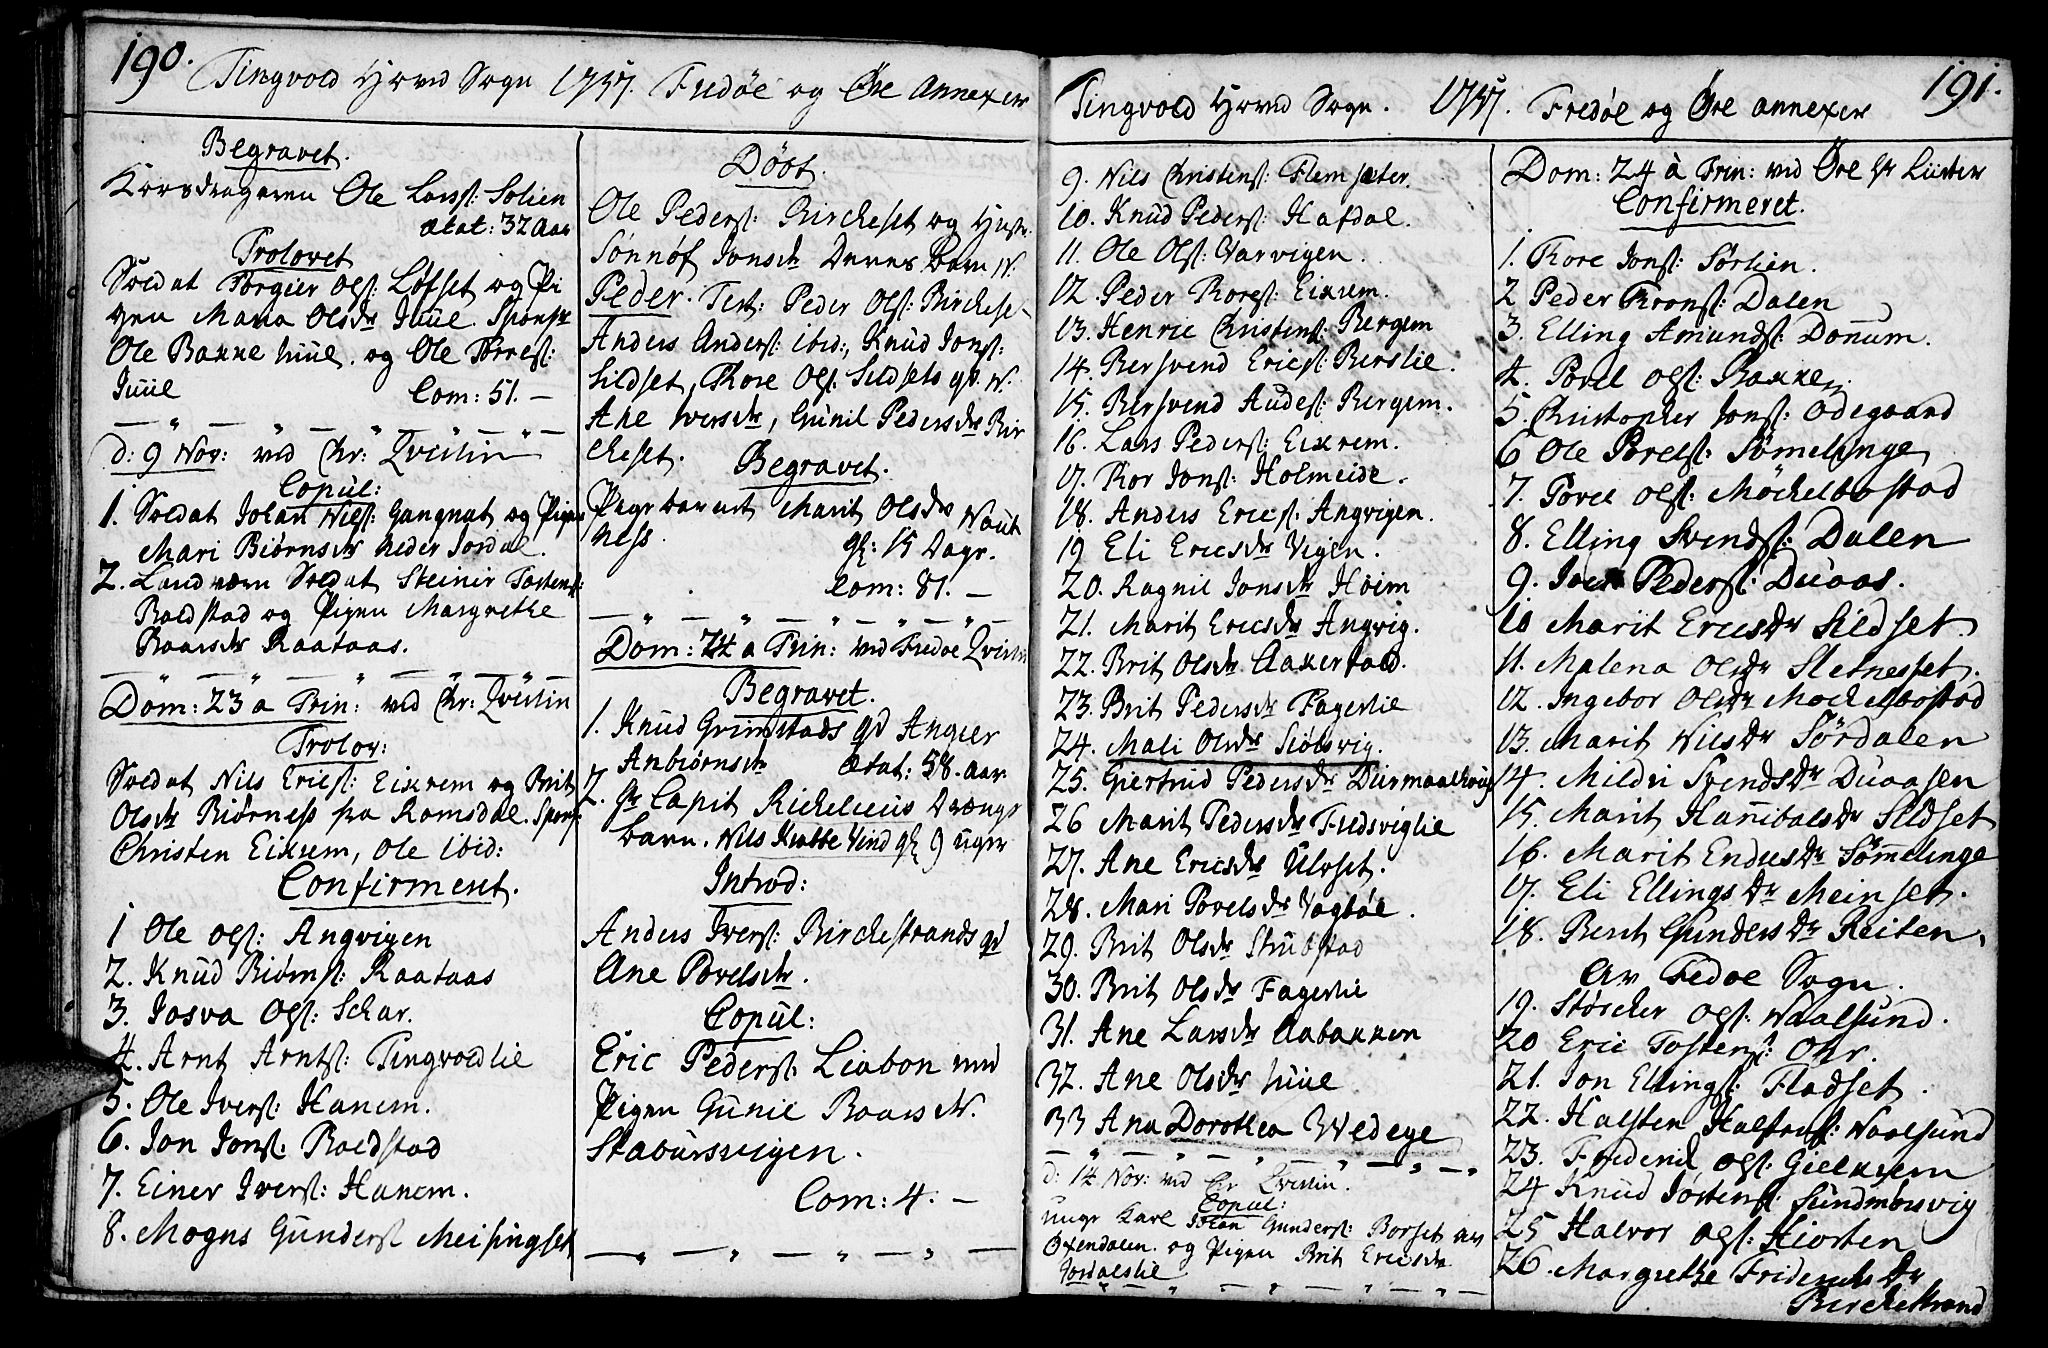 190. Tingvold Hoved Sogn 1757. Fredøe og Øre Annexer
Begravet.
Korsdrageren Ole Larss: Solien
ætat: 32 Aar
Trolovet
Soldat Torgier Ols: Løfset og Pi
gen Maria Olsdr Juul. Spons
Ole Bakke Juul. og Ole Torres:
Juul Com: 51. –
d: 9 Nov: ved Chr: Qvistin
Copul:
1. Soldat Johan Nils: Gangnat og Pigen
Mari Biørnsdr neder Jordal.
2. Landværn Soldat Steinir Tostens:
Roldstad og Pigen Margrethe
Roarsdr Raataas.
Dom: 23 a Trin: ved Chr: Qvistin
Trolov:
Soldat Nils Erics: Eikrem og Brit
Olsdr Biørness fra Romsdal. Spons:
Christen Eikrem, Ole ibid:
Confirmeret.
1 Ole Ols: Angvigen
2. Knud Biørns: Raataas
3. Josva Ols: Schar.
4. Arnt Arnts: Tingvoldlie
5. Ole Ivers: Hanem.
6. Jon Jons: Roldstad
7. Einer Ivers: Hanem.
8. Mogns Gunders: Meisingset
Døbt.
Ole Peders: Bircheset og Hustr.
Sønnøf Jonsdr Deres Barn N.
Peder. Test: Peder Ols: Bircheset
Anders Anders: ibid:, Knud Jons:
Sildset, Tore Ols: Sildsets qv. N.
Ane Iversdr, Gunil Pedersdr Bir
cheset.
Begravet.
Pigebarnet Marit Olsdr Naut
ness. gl: 15 Dage.
Com: 81. –
Dom: 24 a Trin: ved Fredøe Qvistin
Begravet.
1. Knud Grimstads qd Angier
Anbiørnsdr Ætat: 58. aar
2. Hr Capit Richelieus Drænge
barn. Nils Krabbe Vind gl 9 uger
Introd:
Anders Ivers: Birchestrands qd
Ane Povelsdr.
Copul:
Eric Peders: Liabøn med
Pigen Gunil Roarsdr.
Stabursvigen.
Com: 4. –
Tingvold Hoved Sogn. 1757. Fredøe og Øre annexer 191.
9. Nils Christens: Flemsæter.
10. Knud Peders: Hafdal.
11. Ole Ols: Varvigen.
12. Peder Tores: Eikrem.
13. Henric Christens: Bergem
14. Bersvend Erics: Berslie.
15. Bersvend Audes: Bergem.
16. Lars Peders: Eikrem.
17. Tor Jons: Holmeide.
18. Anders Erics: Angvigen.
19 Eli Ericsdr Vigen.
20. Ragnil Jonsdr Høim
21. Marit Ericsdr Angvig.
22. Brit Olsdr Aakerfald.
23. Brit Pedersdr Fagerlie
24. Mali Olsdr Siølsvig.
25. Giertrud Pedersdr Durmaalsvig
26 Marit Pedersdr Fredsviglie
27. Ane Ericsdr Ulvset.
28. Mari Povelsdr Vogbøe.
29. Brit Olsdr Strubstad
30. Brit Olsdr Fagerlie
31. Ane Larsdr Aabakken
32. Ane Olsdr Juul
33 Ana Dorothea Wedege
d: 14 Nov: ved Chr Qvistin.
Copul:
unge Karl Johan Gunders: Borset av
Øxendalen. og Pigen Brit Ericsdr
Jordalslie
Dom: 24 a Trin: ved Øre Hr
Confirmeret.
1. Tore Jons: Sørlien.
2 Peder Trons: Dalen
3. Elling Amunds: Donum.
4. Povel Ols: Bakken.
5. Christopher Jons: Ødegaard
6 Ole Povels: Sømelinge
7. Povel Ols: Möchelbostad
8. Elling Svends: Dalen
9. Joen Peders: Duaas.
10 Marit Ericsdr Sildset.
11. Malena Olsdr Sletnesset.
12. Ingebor Olsdr Mochelbostad
13. Marit Nilsdr Sørdalen
14. Mildri Svendsdr Duaasen
15. Marit Hanibalsdr Sildset
16. Marit Endresdr Sømmelinge
17. Eli Ellingsdr Meinset.
18. Berit Gundersdr Reiten.
Av Fredøe Sogn.
19. Størcher Ols: Naalsund.
20 Eric Tostens: Ohr.
21. Jon Ellings: Fladset.
22. Halsten Halstens: Naalsund
23. Friderich Ols: Gielkrem
24 Knud Jøstens: Sundmorsvig
25 Halvor Ols: Hiorten
26. Margrethe Friderichsdr
Birchestrand